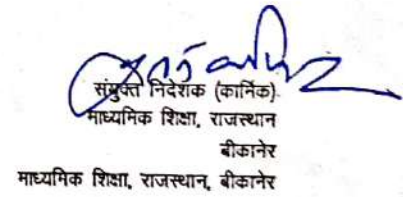 संयुक्त निदेशक (कार्मिक)
माध्यमिक शिक्षा, राजस्थान
बीकानेर
माध्यमिक शिक्षा, राजस्थान, बीकानेर